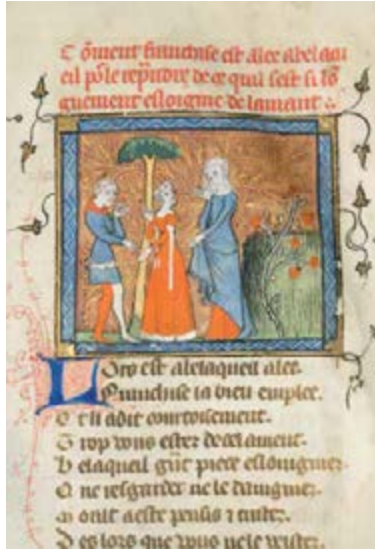 Cõment franchise est alee abelacu
eil põ le rep̃ndre de ce quil sest si lõ
guement esloignie de lamant
LOrs est abelaqueil alee.
Franchise la bien emplee.
Et li adit courtoisement.
Trop vous estez decelament.
Belaqueil gñt piece esloigniez.
Q̃ resgarder ne le daigniez.
Moult a este pensis ⁊ tristez.
Des lors que vous ne le veistez.